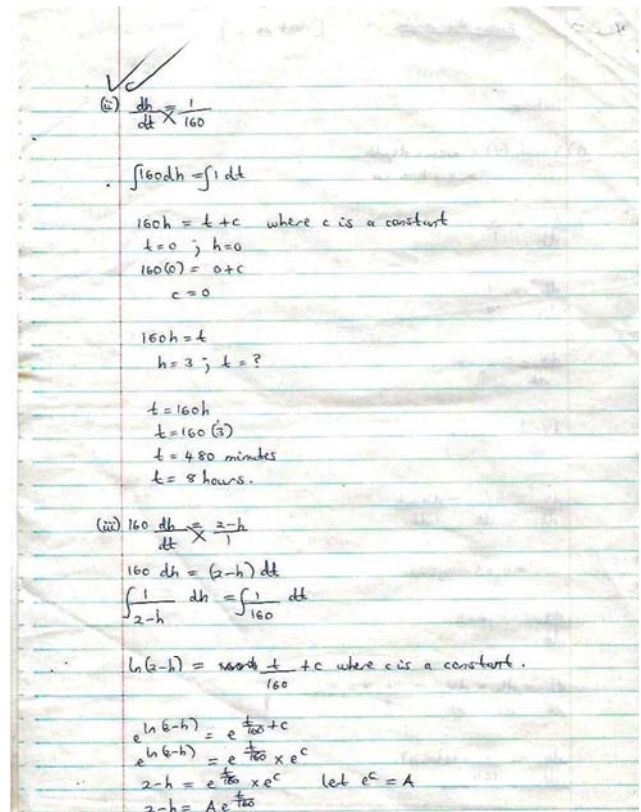 (ii) dh/dt = 1/160
∫160dh = ∫1 dt
160h = t + c where c is a constant
t=0 ; h=0
160(0) = 0+c
c = 0
160h = t
h = 3 ; t = ?
t = 160h
t = 160(3)
t = 480 minutes
t = 8 hours.
(iii) 160 dh/dt = 2-h/1
160 dh = (2-h) dt
∫1/2-h dh = ∫1/160 dt
ln(2-h) = t/160 + c where c is a constant.
e^ln(2-h) = e^t/160 + c
e^ln(2-h) = e^t/160 × e^c
2-h = e^t/160 × e^c let e^c = A
2-h = Ae^t/160